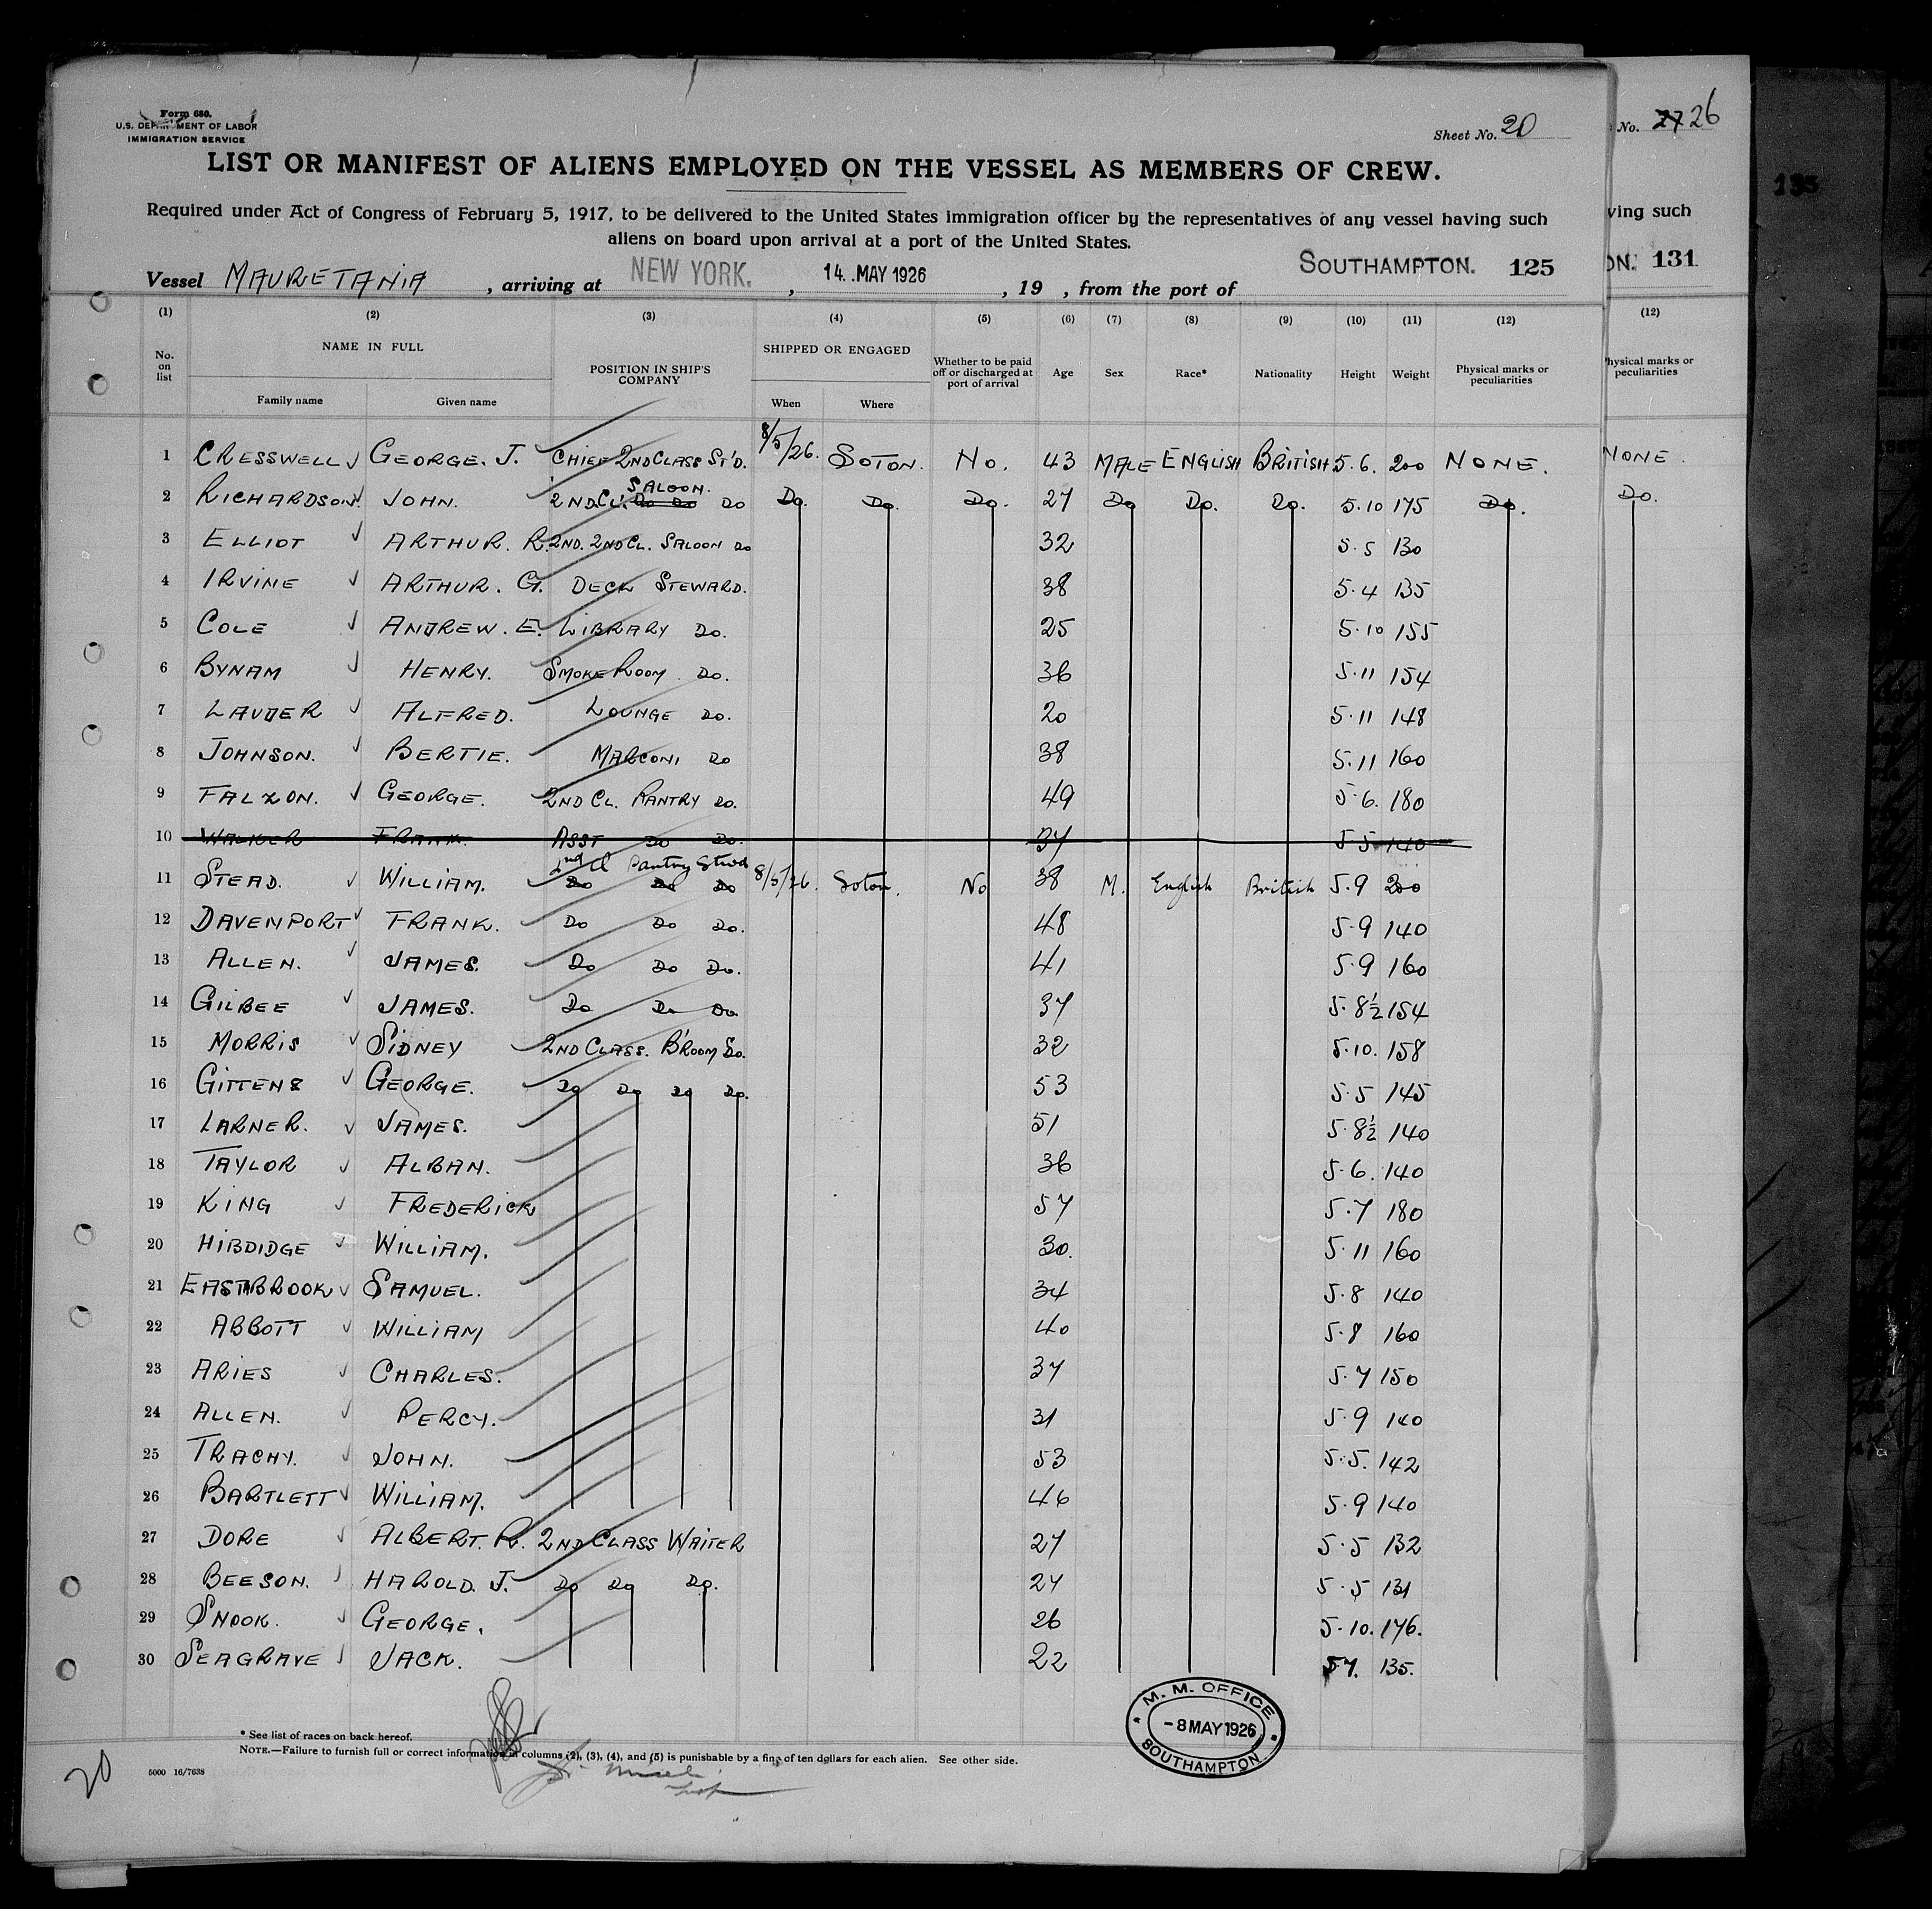 Form 680.
U.S. DEPARTMENT OF LABOR
IMMIGRATION SERVICE
Sheet No. 20
No. 27 26
LIST OR MANIFEST OF ALIENS EMPLOYED ON THE VESSEL AS MEMBERS OF CREW.
Required under Act of Congress of February 5, 1917, to be delivered to the United States immigration officer by the representatives of any vessel having such
aliens on board upon arrival at a port of the United States.
ving such
Vessel MAURETANIA, arriving at NEW YORK., 14. MAY 1926, 19 , from the port of SOUTHAMPTON. 125
ON. 131
135
(1) (2) (3) (4) (5) (6) (7) (8) (9) (10) (11) (12) (12)
No. on list NAME IN FULL POSITION IN SHIP'S COMPANY SHIPPED OR ENGAGED Whether to be paid off or discharged at port of arrival Age Sex Race* Nationality Height Weight Physical marks or peculiarities
hysical marks or peculiarities
Family name Given name When Where
1 CRESSWELL GEORGE. J. CHIEF 2ND CLASS ST'D. 8/5/26. SOTON. No. 43 MALE ENGLISH BRITISH 5.6. 200 NONE. NONE.
2 RICHARDSON. JOHN. 2ND.CL. Do Do SALOON. Do Do. Do. Do. 27 Do Do. Do. 5.10 175 Do. Do.
3 ELLIOT ARTHUR. R. 2ND. 2ND CL. SALOON Do 32 5.5 130
4 IRVINE ARTHUR. G. DECK STEWARD. 38 5.4 135
5 COLE ANDREW. E. LIBRARY Do. 25 5.10 155
6 BYNAM HENRY. SMOKE ROOM. Do. 36 5.11 154
7 LAUDER ALFRED. LOUNGE Do. 20 5.11 148
8 JOHNSON. BERTIE. MARCONI Do 38 5.11 160
9 FALZON. GEORGE. 2ND CL. PANTRY Do. 49 5.6. 180
10 WALKER FRANK. ASST Do Do. 37 5.5 140
11 STEAD. WILLIAM. 2nd Cl Pantry Stwd Do Do Do 8/5/26. Soton. No 38 M. English British 5.9 200
12 DAVENPORT FRANK. Do Do Do. 48 5.9 140
13 ALLEN. JAMES. Do Do Do. 41 5.9 160
14 GILBEE JAMES. Do Do Do. 37 5.8½ 154
15 MORRIS SIDNEY 2ND CLASS. B'ROOM Do. 32 5.10. 158
16 GITTENS GEORGE. Do Do Do Do. 53 5.5 145
17 LARNER. JAMES. 51 5.8½ 140
18 TAYLOR ALBAN. 36 5.6. 140
19 KING FREDERICK 57 5.7 180
20 HIBDIDGE WILLIAM. 30. 5.11 160
21 EASTBROOK SAMUEL. 34 5.8 140
22 ABBOTT WILLIAM 40 5.8 160
23 ARIES CHARLES. 37 5.7 150
24 ALLEN. PERCY. 31 5.9 140
25 TRACHY. JOHN. 53 5.5. 142
26 BARTLETT WILLIAM. 46 5.9 140
27 DORE ALBERT. R. 2ND CLASS WAITER 27 5.5 132
28 BEESON. HAROLD. J. Do Do Do. 24 5.5 131
29 SNOOK. GEORGE. 26 5.10. 176.
30 SEAGRAVE JACK. 22 5.7. 135.
M. M. OFFICE
-8 MAY 1926
SOUTHAMPTON
* See list of races on back hereof.
NOTE.—Failure to furnish full or correct information in columns (2), (3), (4), and (5) is punishable by a fine of ten dollars for each alien. See other side.
20
5000 16/7638